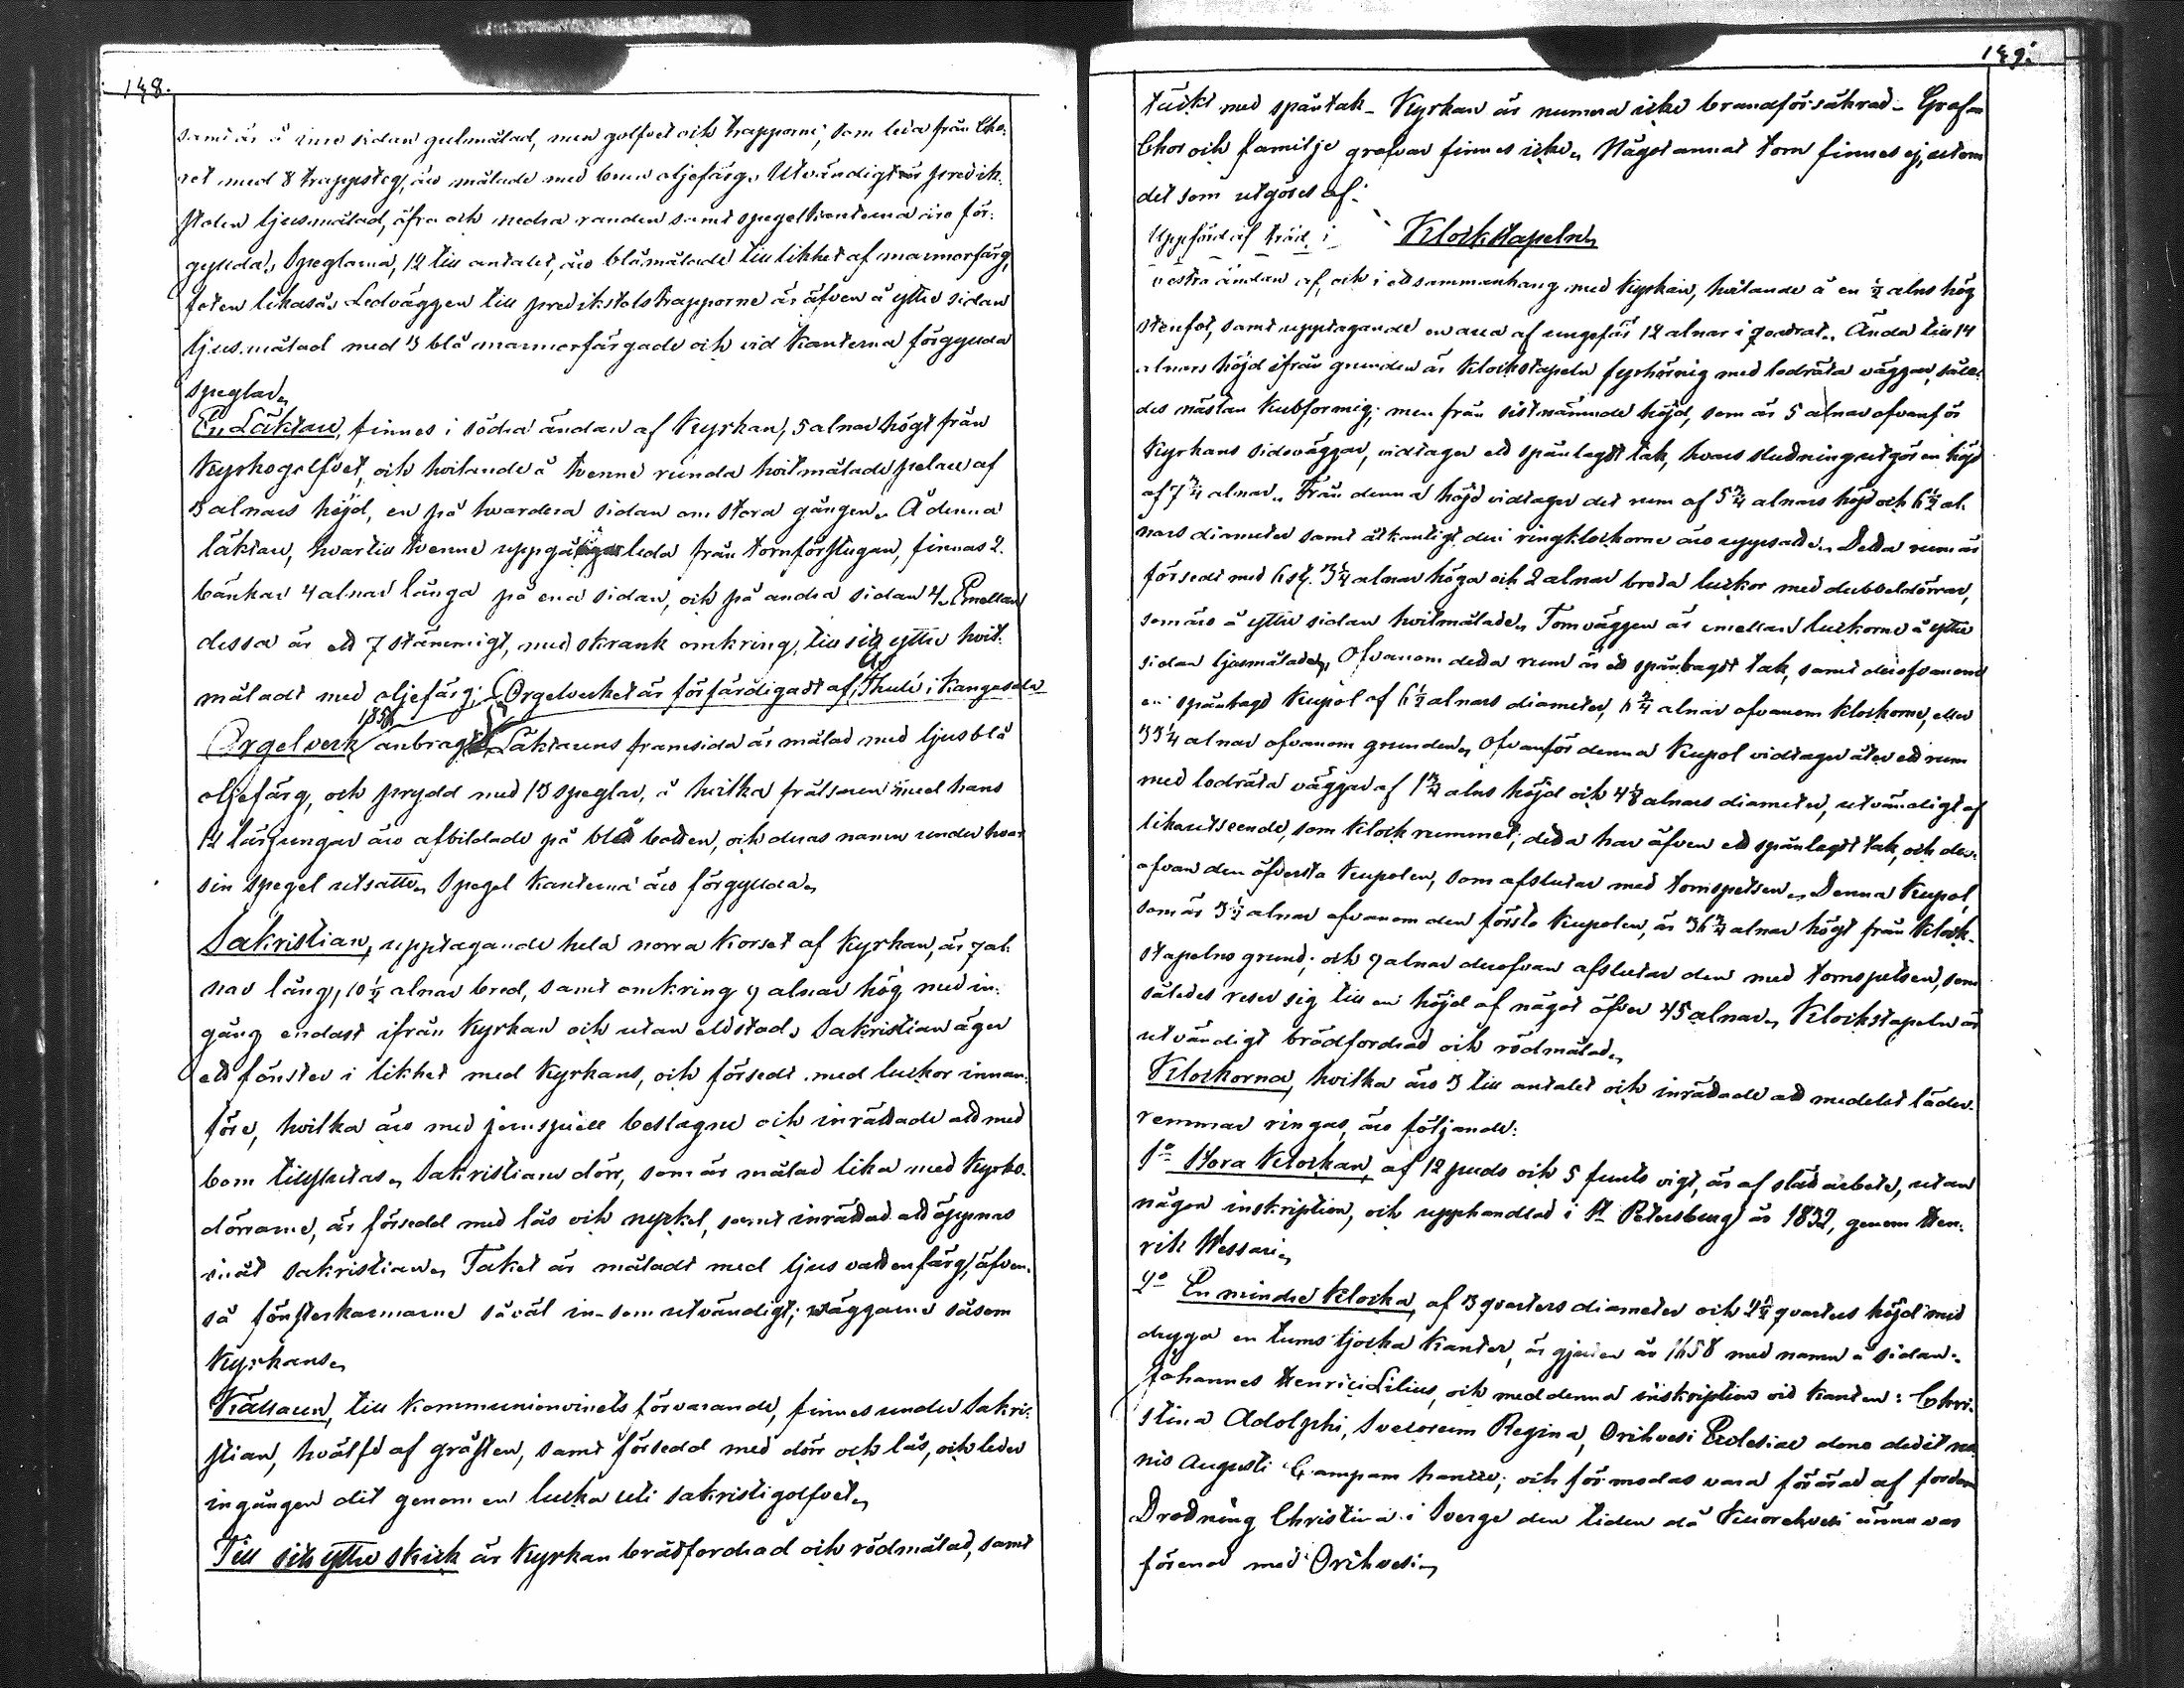 148.
samt är å inre sidan gulmålad, men golfvet och trapporne, som leda från Cho-
ret med 8 trappsteg, äro målade med brun oljefärg. Utvändigt är predik-
stolen ljusmålad, öfra och nedra randen samt spegelkanterna äro för-
gyllda. Speglarna, 12 till antalet, äro blåmålade till likhet af marmorfärg,
foten likaså. Ledväggen till predikstolstrapporne är äfven å yttre sidan
ljusmålad med 3 blå marmorfärgade och vid kanterna förgyllda
speglar.
En Läktare, finnes i södra ändan af Kyrkan, 5 alnar högt från
Kyrkogolfvet, och hvilande å tvenne runda hvitmålade pelare af
3 alnars höjd, en på hvardera sidan om stora gången. Å denna
läktare, hvartill tvenne uppgångar leda från tornförstugan, finnas 2
bänkar 4 alnar långa på ena sidan, och på andra sidan 4. Emellan
dessa är ett 7 stämmigt, med skrank omkring, till sitt yttre hvit-
måladt med oljefärg; Orgelverket är förfärdigadt af Thulé i Kangasala
Orgelverk anbragt. Läktarens framsida är målad med ljusblå
oljefärg, och prydd med 13 speglar, å hvilka frälsaren med hans
12 lärjungar äro afbildade på blå botten, och deras namn under hvar
sin spegel utsatte. Spegel kanterna äro förgyllda.
Sakristian, upptagande hela norra korset af Kyrkan, är 7 al-
nar lång, 10 1/2 alnar bred, samt omkring 9 alnar hög med in-
gång endast ifrån Kyrkan och utan eldstad. Sakristian äger
ett fönster i likhet med Kyrkans, och försedt med luckor innan-
före, hvilka äro med jernspjäll beslagne och inrättade att med
bom tillslutas. Sakristians dörr, som är målad lika med Kyrko-
dörrarne, är försedd med lås och nyckel, samt inrättad att öppnas
inåt sakristian. Taket är måladt med ljus vattenfärg, äfven-
så fönsterkarmarne såväl in- som utvändigt; väggarne såsom
Kyrkans.
Källaren, till Kommunionvinets förvarande, finnes under Sakri-
stian, hvälfd af gråsten, samt försedd med dörr och lås, och leder
ingången dit genom en lucka uti sakristigolfvet.
Till sitt yttre skick är Kyrkan brädfordrad och rödmålad, samt
149.
täckt med spåntak. Kyrkan är numera icke brandförsäkrad. Grafvar
Chor och familje grafvar finnes icke. Något annat torn finnes ej, utom
det som utgöres af:
Klockstapeln,
Uppförd af träd i
vestra ändan af, och i ett sammanhang med Kyrkan, hvilande å en 1/2 alns hög
stenfot, samt upptagande en area af ungefär 12 alnar i quadrat. Ända till 14
alnars höjd ifrån grunden är Klockstapeln fyrhörnig med lodräta väggar, såle-
des nästan kubformig; men från sistnämnde höjd, som är 5 alnar ofvanför
Kyrkans sidoväggar, vidtager ett spånlagdt tak, hvars sluttning utgör en höjd
af 7 3/4 alnar. Från denna höjd vidtager det rum af 5 3/4 alnars höjd och 6 1/2 al-
nars diameter samt åtkantigt deri ringklockorne äro uppsatte. Detta rum är
försedt med 6 st. 3 1/4 alnar höga och 2 alnar breda luckor med dubbeldörrar,
som äro å yttre sidan hvitmålade. Tornväggen är emellan luckorne å yttre
sidan ljusmålade. Ofvanom detta rum är ett spånlagdt tak, samt derofvanom
en spånlagd Kupol af 6 1/2 alnars diameter, 6 3/4 alnar ofvanom klockorne, eller
33 1/4 alnar ofvanom grunden. Ofvanför denna Kupol vidtager åter ett rum
med lodräta väggar af 1 3/4 alns höjd och 4 1/8 alnars diameter, utvändigt af
lika utseende, som klockrummet; detta har äfven ett spånlagdt tak, och der-
ofvan den öfversta Kupolen, som afslutar med tornspetsen. Denna Kupol,
som är 3 1/2 alnar ofvanom den första Kupolen, är 36 3/4 alnar högt från Klock-
stapelns grund; och 9 alnar derofvan afslutar den med tornspetsen, som
således reser sig till en höjd af något öfver 45 alnar. Klockstapeln är
utvändigt brädfordrad och rödmålad.
Klockorna, hvilka äro 3 till antalet och inrättade att medelst läder-
remmar ringas, äro följande:
1o Stora Klockan, af 12 puds och 5 funts vigt, är af slät arbete, utan
någon inskription, och upphandlad i St Petersburg år 1832, genom Hen-
rik Wessari.
2o En mindre Klocka, af 3 quarters diameter och 2 1/2 quarters höjd med
dryga en tums tjocka kanter, är gjuten år 1658 med namn å sidan:
Johannes Henrici Lilius, och med denna inskription vid kanten: Chri-
stina Adolphi, Svecorum Regina, Orihvesi Ecclesiae dono dedit no-
nis Augusti Campam hancce; och förmodas vara förärad af fordom
Drottning Christina i Sverge den tiden då Kuorehvesi ännu var
förenad med Orihvesi.